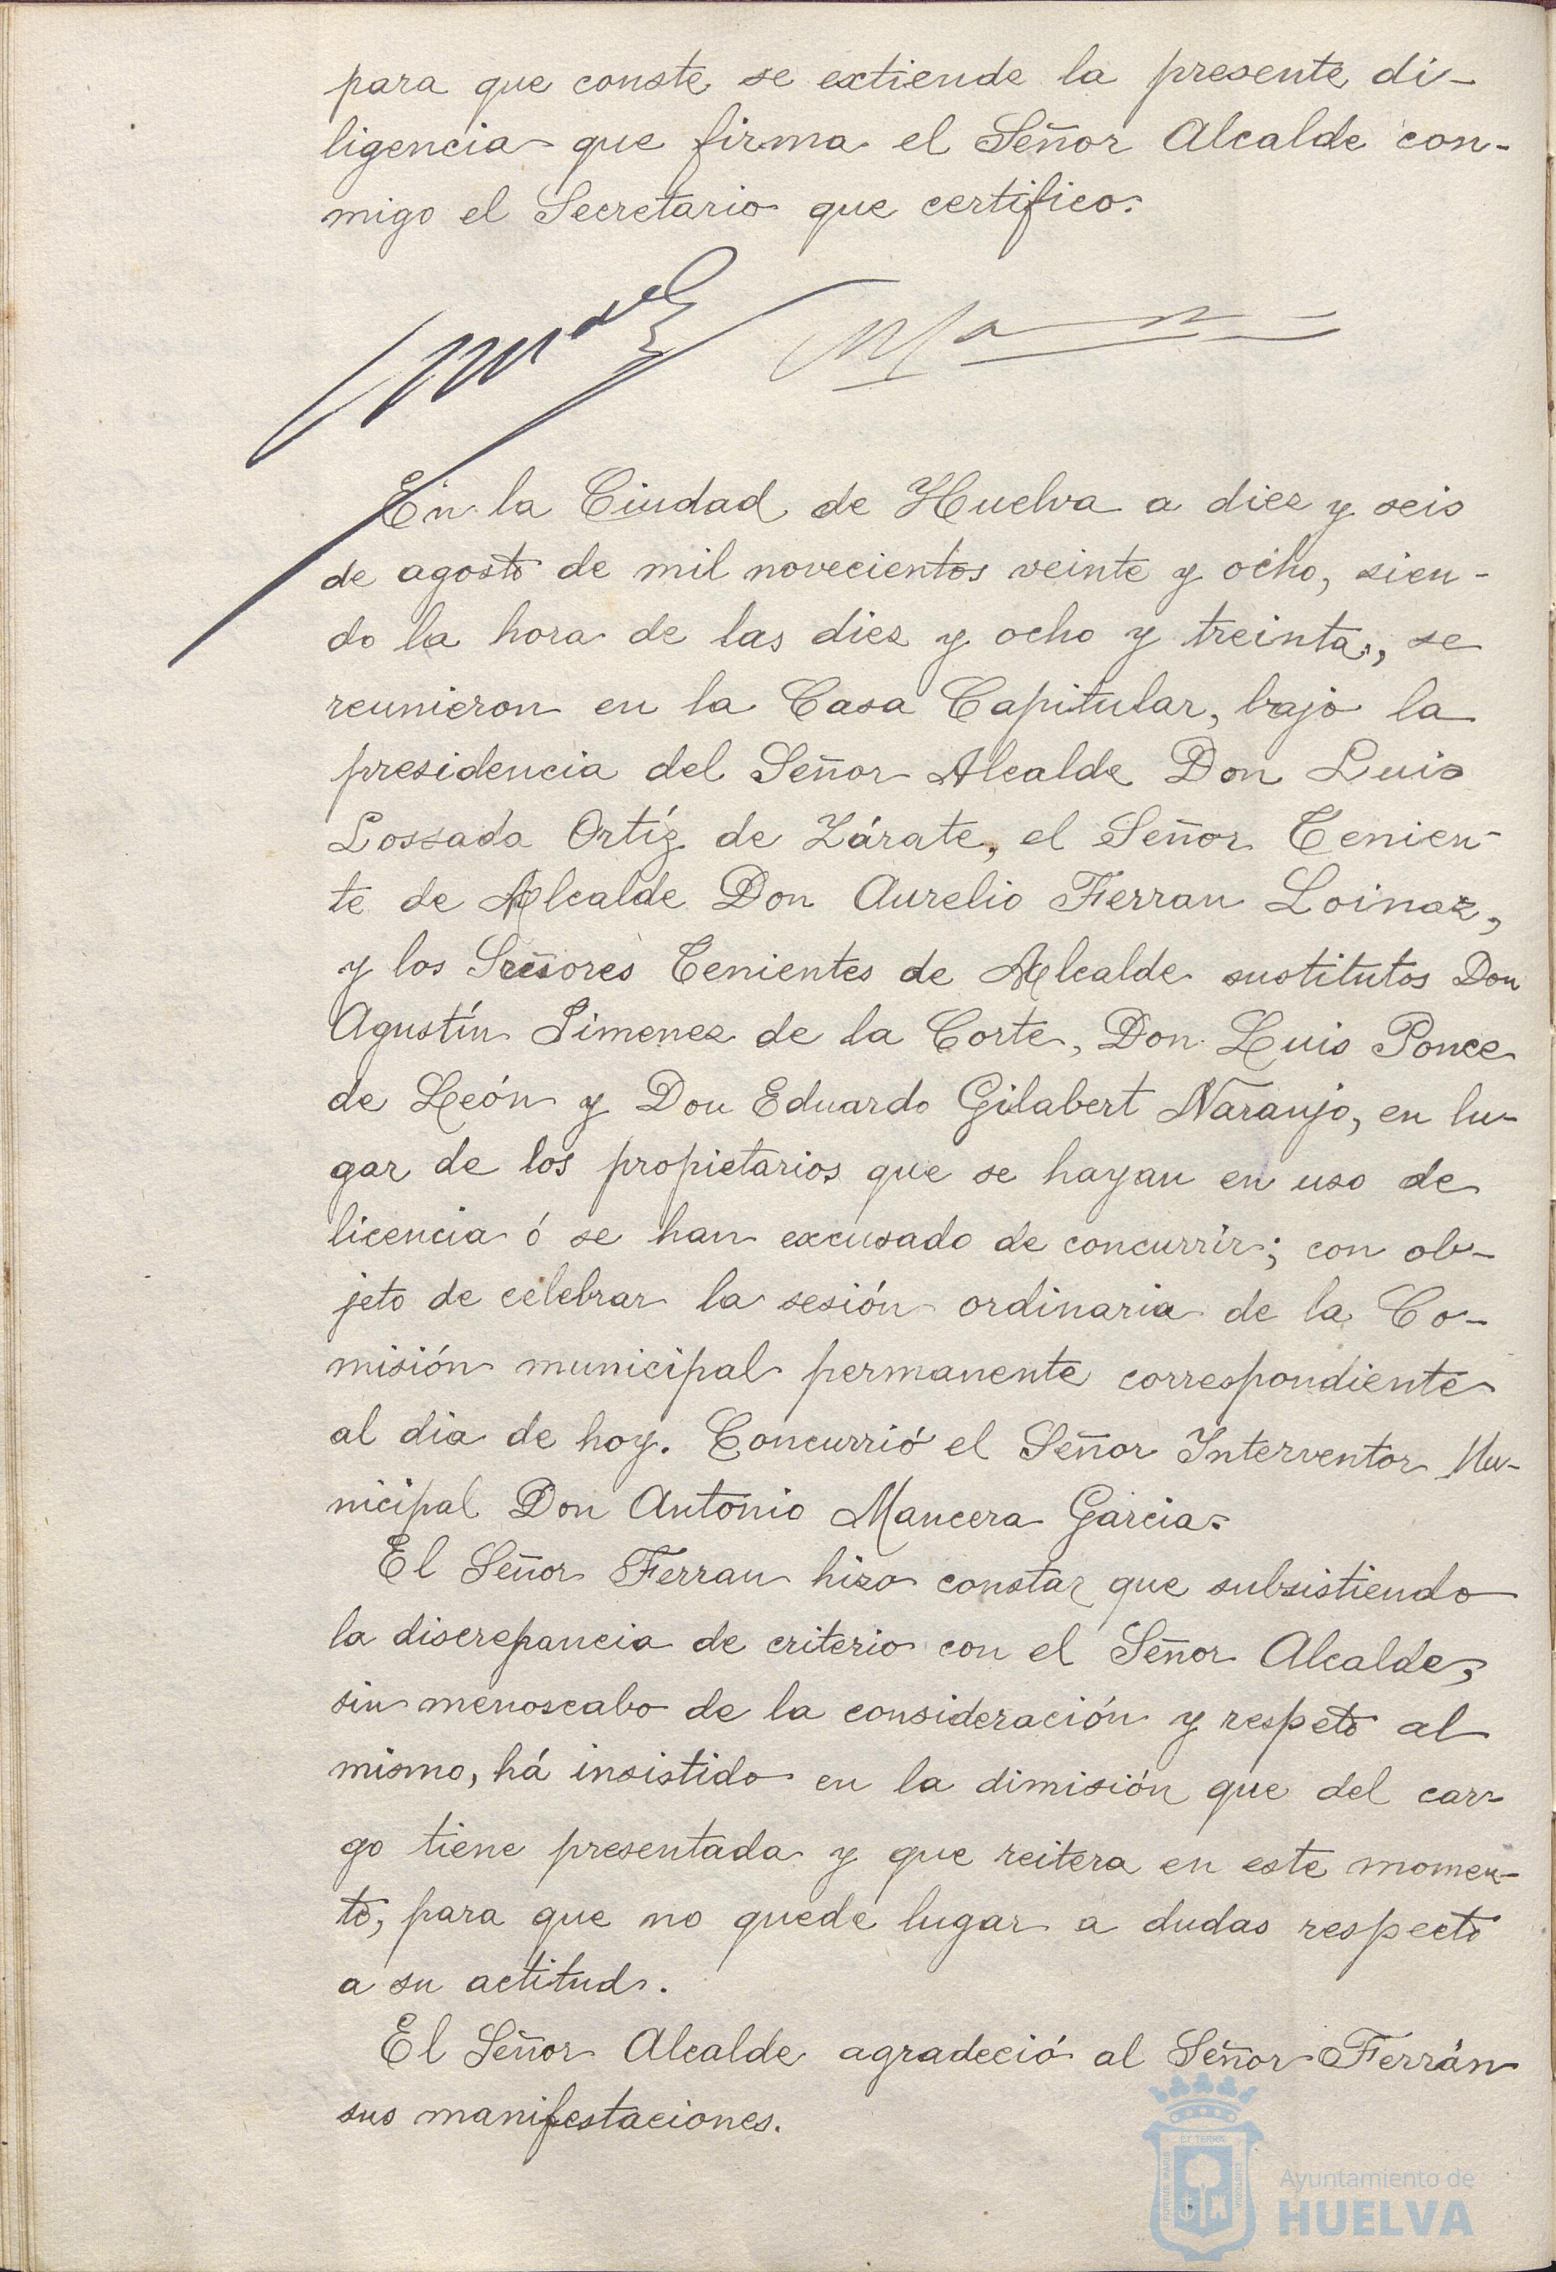 para que conste se extiende la presente di-
ligencia que firma el Señor Alcalde con-
migo el Secretario que certifico.
En la Ciudad de Huelva a diez y seis
de agosto de mil novecientos veinte y ocho, sien-
do la hora de las diez y ocho y treinta, se
reunieron en la Casa Capitular, bajo la
presidencia del Señor Alcalde Don Luis
Lossada Ortíz de Zárate, el Señor Tenien-
te de Alcalde Don Aurelio Ferran Loinaz,
y los Señores Tenientes de Alcalde sustitutos Don
Agustín Jimenez de la Corte, Don Luis Ponce
de León y Don Eduardo Gilabert Naranjo, en lu-
gar de los propietarios que se hayan en uso de
licencia ó se han excusado de concurrir; con ob-
jeto de celebrar la sesión ordinaria de la Co-
misión municipal permanente correspondiente
al dia de hoy. Concurrió el Señor Interventor Mu-
nicipal Don Antonio Mancera Garcia.
El Señor Ferran hizo constar que subsistiendo
la discrepancia de criterio con el Señor Alcalde,
sin menoscabo de la consideración y respeto al
mismo, há insistido en la dimisión que del car-
go tiene presentada y que reitera en este momen-
to, para que no quede lugar a dudas respecto
a su actitud.
El Señor Alcalde agradeció al Señor Ferrán
sus manifestaciones.
Ayuntamiento de
HUELVA